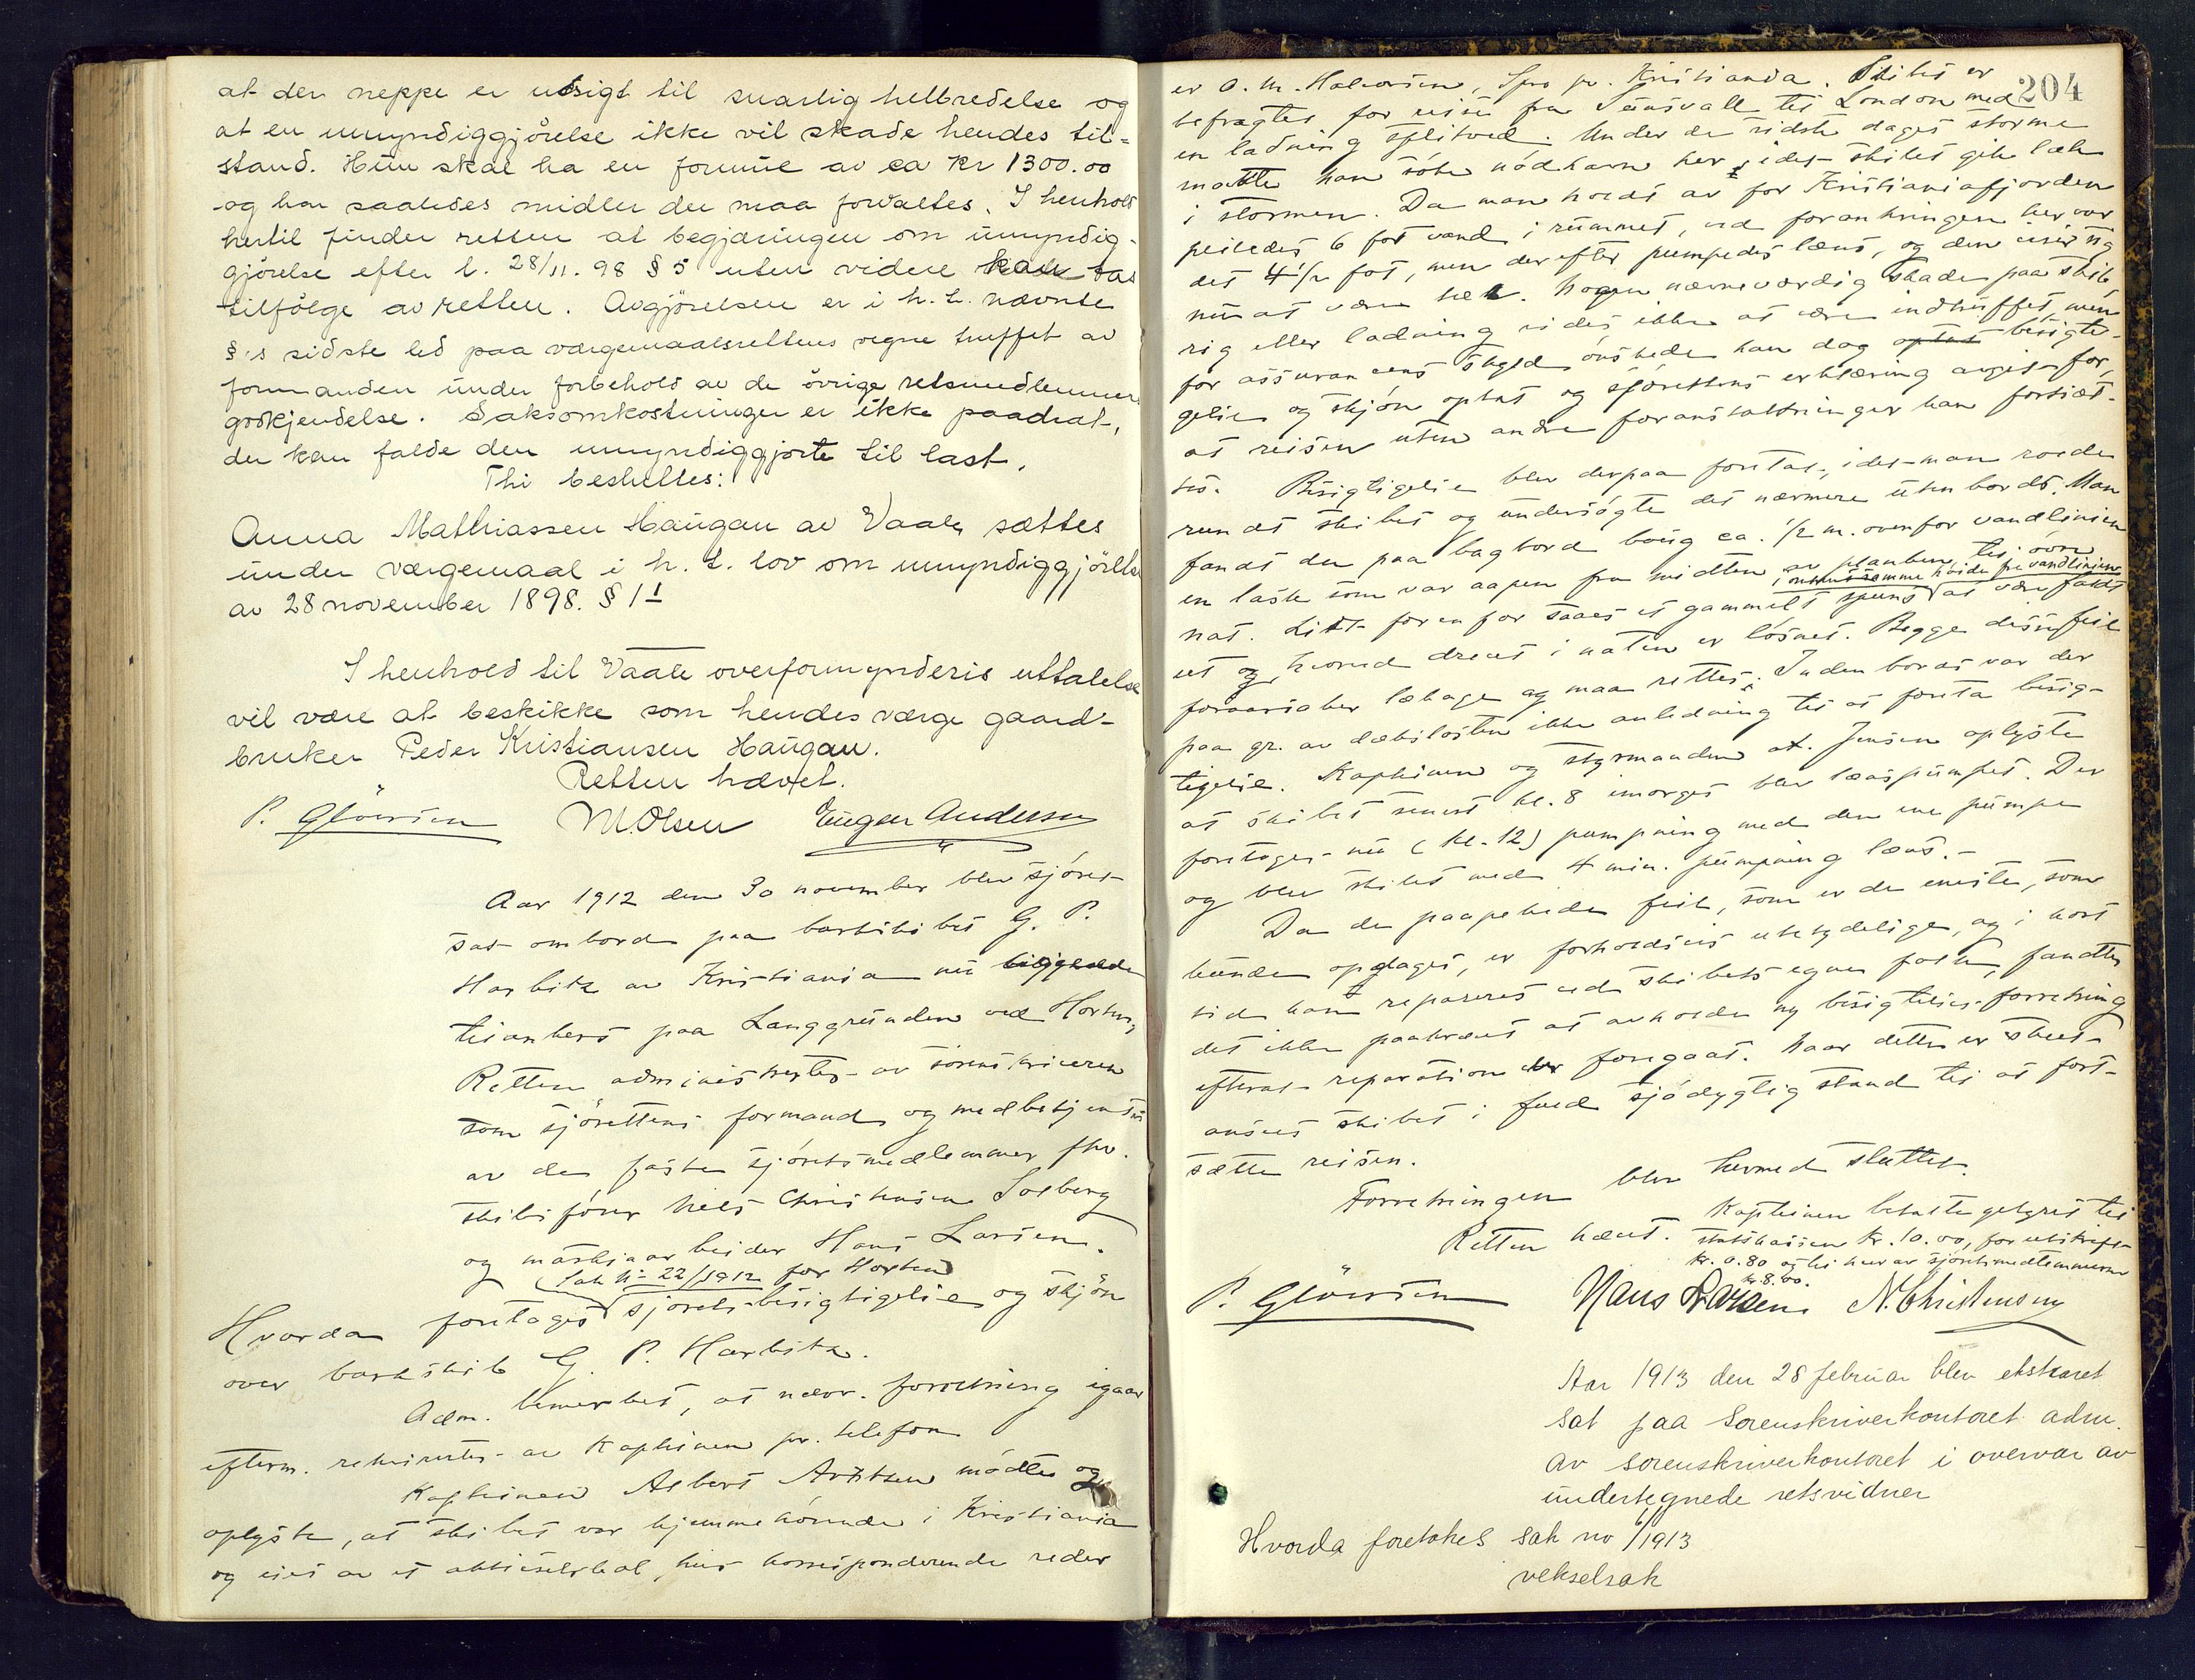 at der neppe er utsigt til snarlig helbredelse og
at en umyndiggjørelse ikke vil skade hendes til=
stand. Hun skal ha en formue av ca Kr 1300.00
og har saaledes midler der maa forvaltes. I henhold
hertil finder retten at begjæringen om umyndig-
gjørelse efter l. 28/11. 98 § 5 uten videre kan tas
tilfölge av retten. Avgjörelsen er i h. t. nævnte
§'s sidste led paa værgemaalsrettens vegne truffet av
formanden under forbehold av de övrige retsmedlemmers
godkjendelse. Saksomkostninger er ikke paadrat,
der kan falde den umyndiggjorte til last.
Thi besluttes:
Anna Mathiassen Haugan av Vaale sættes
under værgemaal i h. t. lov om umyndiggjörelse
av 28 november 1898. § 1 1
I henhold til Vaale overformynderis uttalelse
vil være at beskikke som hendes værge gaard-
bruker Peder Kristiansen Haugan.
Retten hævet.
P. Glöersen M. Olsen Eugen Andersen
Aar 1912 den 30 november blev sjöret
sat ombord paa barkskibet G. P.
Harbitz av Kristiania nu
tilankers paa Langgrunden ved Horten,
Retten administrertes av sorenskriveren
som sjörettens formand og medbetjentes
av de faste sjöretsmedlemmer fhv.
skibsförer Nels Christensen Solberg
og maskinarbeider Hans Larsen.
Sak No 22/1912 for Horten
Hvorda foretoges sjörets-besigtigelse og skjön
over barkskib G. P. Harbitz.
Adm. bemerket, at nærv. forretning igaar
efterm. rekvirertes av kapteinen pr. telefon
Kapteinen Albert Arntsen mödte og
oplyste, at skibet var hjemmehörende i Kristiania
og eies av et aktieselskab, hvis korresponderende reder
204
er O. M. Halvorsen, Spro pr. Kristiania. Skibet er
befragtet for reise fra Sundsvall til London med
en ladning splitved. Under de sidste dages storme
maatte han söke nödhavn her, idet skibet gik læk
i stormen. Da man holdt av for Kristianiafjorden
peiledes 6 fot vand i rummet, ved forankringen her var
det 4 1/2 fot, men derefter pumpedes læns, og den viser sig
nu at være tæt. Nogen nævneværdig skade paa skib,
rig eller ladning vides ikke at være indtruffet, men
for assurancens skyld önskede han dog optat besigti-
gelse og skjön optat og sjörettens erklæring avgit for,
at reisen uten andre foranstaltninger kan fortsæt-
tes. Besigtigelse blev derpaa foretat, idet man roede
rundt skibet og undersögte det nærmere utenbords. Man
fandt der paa bagbord boug ca. 1/2 m. ovenfor vandlinien
en lask som var aapen fra midten av planken til övre
omtrent samme höide fra vandlinien
nat. Litt foran for saaes et gammelt spuns at være faldt
ut og hvorved drevet i naten er lösnet. Begge disse feil
foraarsaker lækage og maa rettes. Indenbords var der
paa gr. av dækslasten ikke anledning til at foreta besig-
tigelse. Kapteinen og styrmanden A. Jensen oplyste
at skibet senest kl. 8 imorges blev lænspumpet. Der
foretoges nu (kl. 12) pumpning med den ene pumpe
og blev skibet med 4 min. pumpning læns.-
Da de paapekede feil, som er de eneste, som
kunde opdages, er forholdsvis ubetydelige, og i kort
tid kan repareres ved skibets egne folk, fandtes
det ikke paakrævet at avholde ny besigtelses-forretning
efterat reparation er foregaat. Naar dette er skeet
ansees skibet i fuld sjödygtig stand til at fort-
sætte reisen.
Forretningen blev hermed sluttet.
Kapteinen betalte gebyret til
Retten hævet. statskassen kr. 10.00, for utskrift
kr. 0.80 og til hver av sjöretsmedlemmerne
kr. 8.00.
P. Glöersen Hans Larsen N. Christensen
Aar 1913 den 28 februar blev ekstraret
sat paa Sorenskriverkontoret adm.
av sorenskriverkontoret i overvær av
undertegnede retsvidner
Hvorda foretokes sak no 1/1913
vekselsak